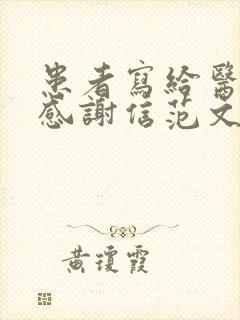 患者寫給醫
感謝信范文
黃瓊霞